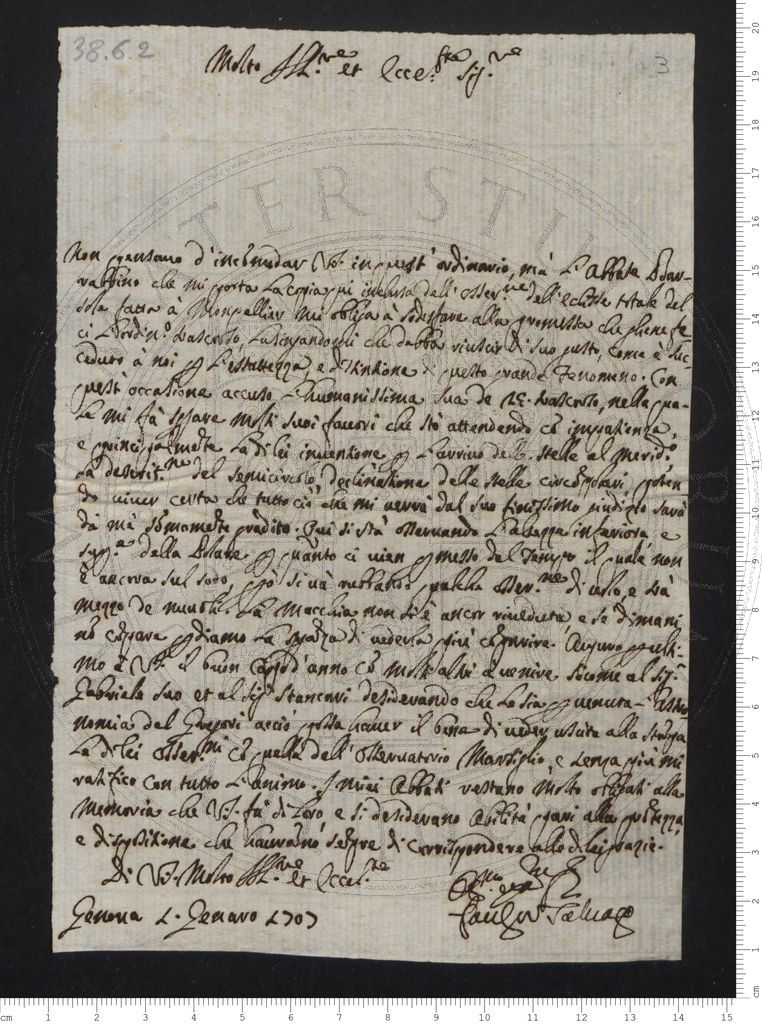 38.6.2
3
Molto Ill.re et Ecce.sto Sig.re
Non pensavo d'incomodar VS. in quest'ordinario, mà L'Abbate Bar-
rabbino che mi porta La copia qui inclusa dell'osser.ne dell'eclisse totale del
sole fatta à Monpellier mi obliga a sodisfare alla promessa che gliene fe
ci L'ordin.o trascorso, che dabba riuscir di suo gusto, come è suc
ceduto à noi p L'esattezza, e distintione di questo grande Fenomeno. Con
quest'occasione accuso L'humanissima sua de 25. trascorso, nella qua-
le mi fà sperare molti suoi favori che stò attendendo cō impatienza,
e principalmente La di lei inventione p L'arrivo delle stelle al merid.o
La descrit.ne del semicircolo, declinatione delle stelle circōpolari poten
do viver certa che tutto ciò che mi verrà dal suo finissimo giuditio sarà
da mà sōmamente gradito. Qui si stà osservando
sup.e della Polare p quanto ci vien pmesso dal Tempo il quale non
è ancora sul sodo, pò si và rubbando qualche osser.ne di
mezzo de nuvoli. La Macchia non si è ancor riveduta, e se dimani
nō cōpare pdiamo La spāza di vederla più cōparire. Auguro p ulti-
mo à VS. il buon Capo d'anno cō molti altri a venire, sicome al Sig.r
Gabriele suo et al Sig.r Stancari desiderando che Le sia pvenuta L'Astro
nomia del Gregori acciò possa haver il bene di veder uscite alla stampa
Le di lei osser.ni cō quelle dell'osservatorio Marsiglio, e senza più mi
ratifico con tutto L'animo. I miei Abbati restano molto obligati alla
Memoria che VS. fà di Loro e si desiderano abilità pari alla prontezza,
e dispositione che havrāno sēpre di corrispondere alle di lei grazie.
Di VS. Molto Ill.re et Eccel.te
Genova 1. Genaro 1707
Salvago